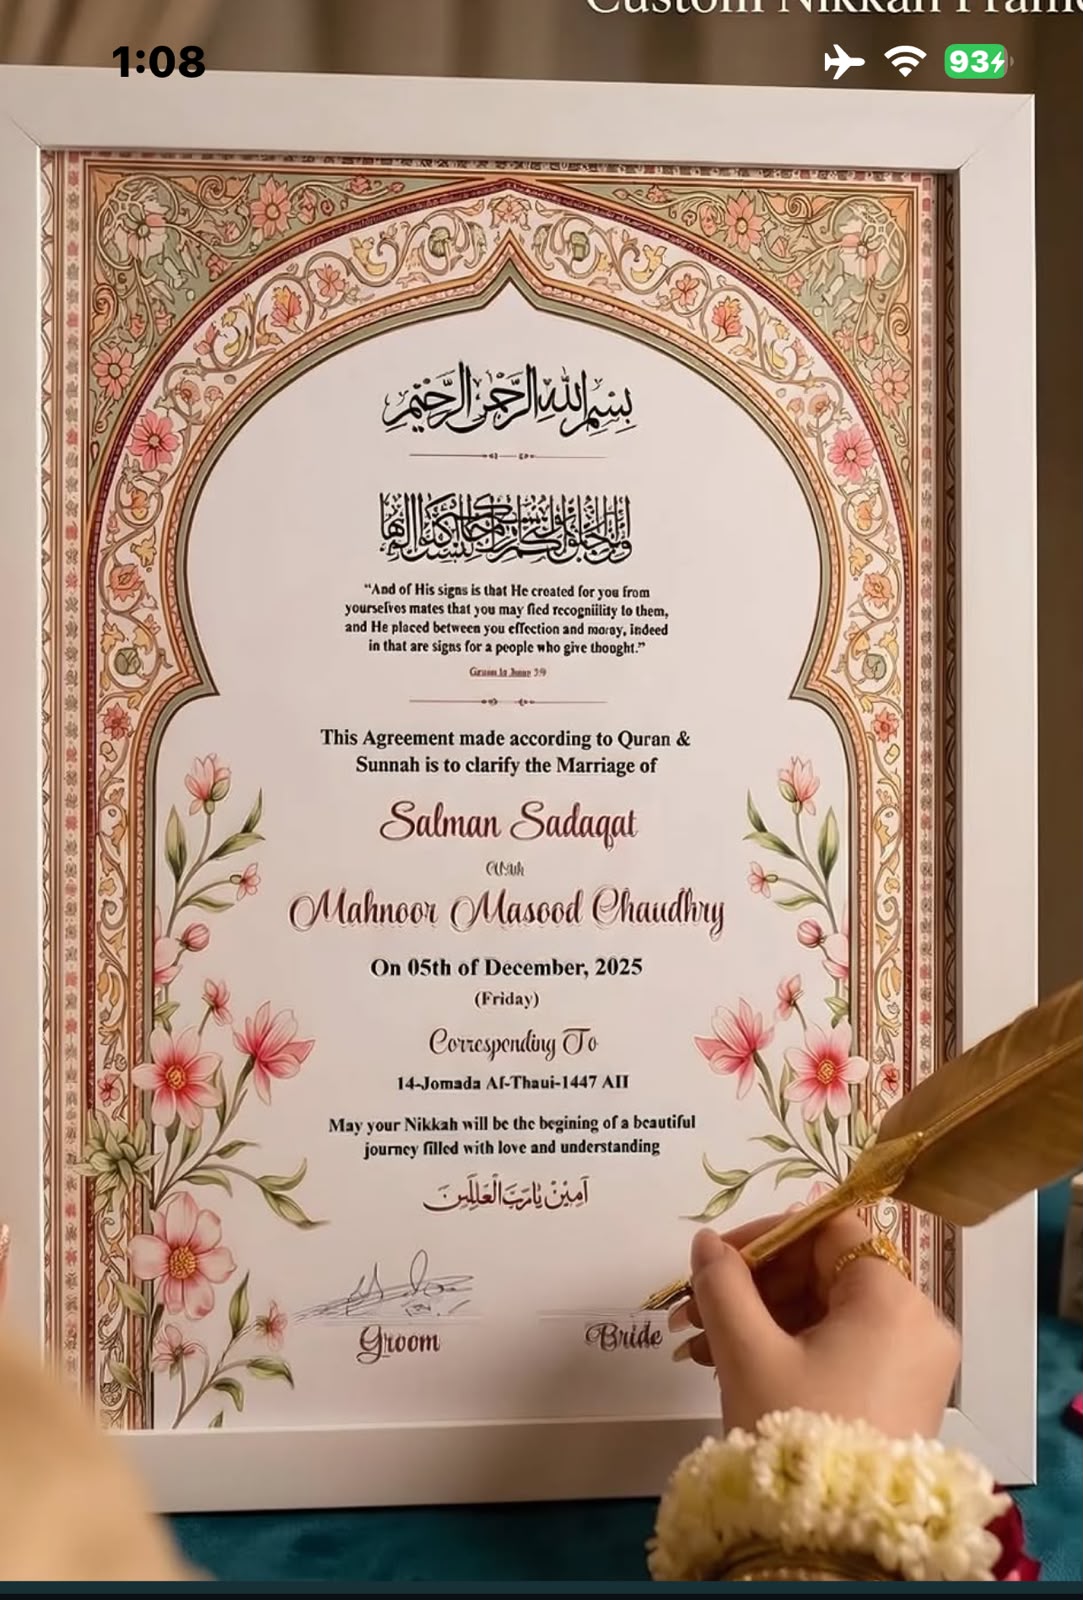 Custom Nikkah Frame
1:08
93
بسم الله الرحمن الرحيم
“And of His signs is that He created for you from
yourselves mates that you may fied recogniility to them,
and He placed between you effection and moray, indeed
in that are signs for a people who give thought.”
This Agreement made according to Quran &
Sunnah is to clarify the Marriage of
Salman Sadaqat
With
Mahnoor Masood Chaudhry
On 05th of December, 2025
(Friday)
Corresponding To
14-Jomada Af-Thaui-1447 AII
May your Nikkah will be the begining of a beautiful
journey filled with love and understanding
آمين يارب العالمين
Groom
Bride